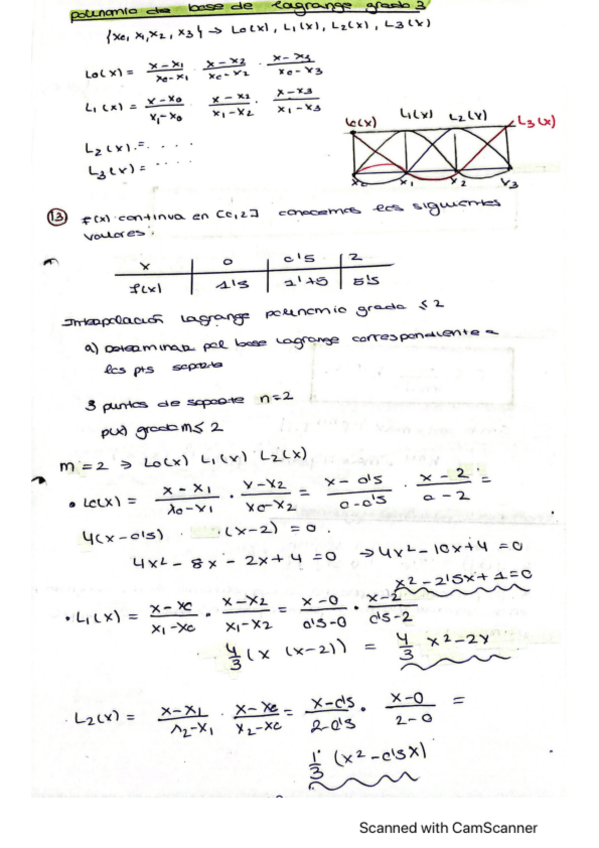 polinomio de base de lagrange grado 3
{x0, x1, x2, x3} → L0(x), L1(x), L2(x), L3(x)
L0(x) = x-x1/x0-x1 · x-x2/x0-x2 · x-x3/x0-x3
L1(x) = x-x0/x1-x0 · x-x2/x1-x2 · x-x3/x1-x3
L2(x) = ....
L3(x) = ....
L0(x) L1(x) L2(x) L3(x)
x0 x1 x2 x3
13 f(x) continua en [0,2] conocemos los siguientes
valores:
x 0 0'5 2
f(x) 1'5 1'75 5'5
Interpolación Lagrange polinomio grado ≤ 2
a) Determinar pol base Lagrange correspondiente a
los pts soporte
3 puntos de soporte n=2
p(x) grado m ≤ 2
m=2 ⇒ L0(x) L1(x) L2(x)
• L0(x) = x-x1/x0-x1 · x-x2/x0-x2 = x-0'5/0-0'5 · x-2/0-2 =
4(x-0'5) · (x-2) = 0
4x²-8x-2x+4=0 → 4x²-10x+4=0
x²-2'5x+1=0
• L1(x) = x-x0/x1-x0 · x-x2/x1-x2 = x-0/0'5-0 · x-2/0'5-2
4/3 (x (x-2)) = 4/3 x²-2x
· L2(x) = x-x1/x2-x1 · x-x0/x2-x0 = x-0'5/2-0'5 · x-0/2-0 =
1/3 (x²-0'5x)
Scanned with CamScanner